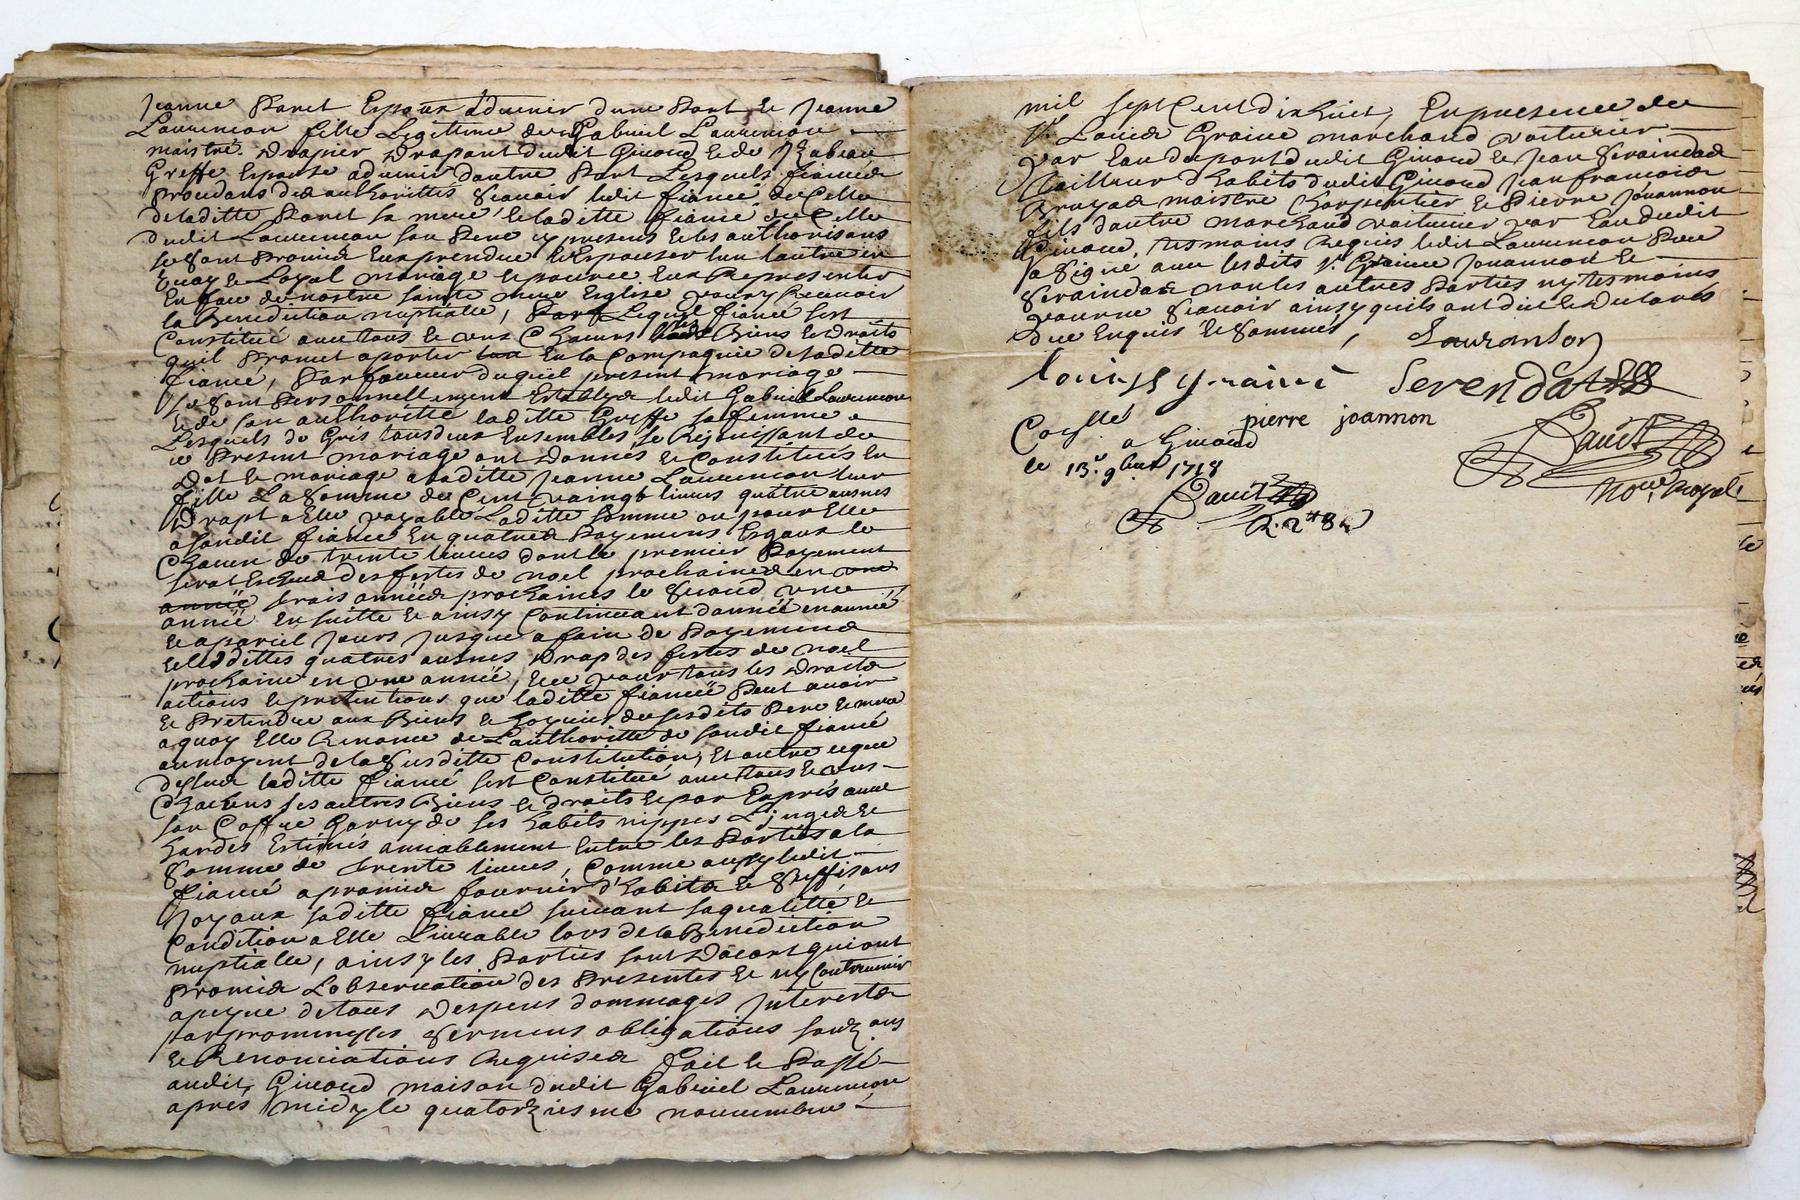 Jeanne Paret Espoux aduenir dune Part et Jeanne
Laurenson fille Legitime de Gabriel Laurenson
maistre Drapier Drapant dudit Giuord et de Izabeau
Greffe Espouse aduenir dautre Part Lesquels fiancés
procedans des authorittés scauoir ledit fiancé de Celle
deladitte Paret sa mere et laditte fiancé de Celle
dudit Laurenson son Pere cy presens et les authorisans
se sont Promis Eux prendre et Espouser lun lautre en
vray et Loyal mariage et pour ce Eux Representer
En face de nostre sainte mere Esglise pour y Receuoir
la Benediction nuptialle, Lequel fiancé sest
Constitué auec tous et vns Chacuns ses Biens et Droits
quil Promet aporter En la Compagnie de laditte
fiancé, Par faueur duquel present mariage
se sont Personnellement Establys ledit Gabriel Laurenson
et de son authoritté laditte Greffe sa femme
Lesquels de Gris tous deux Ensembles se Rejouissant de
ce Present mariage ont Donnés et Constitués En
Dot et mariage a laditte Jeanne Laurenson leur
fille La somme de Cent vaingt liures quatre ausnes
Drapt a Elle payable Laditte somme ou pour Elle
a sondit fiancé En quatres Payemens Esgaux de
Chacun de trente liures dont le premier Payement
serat Escheu des festes de noel prochaines en une
année trois années prochaines le second vne
année En suitte et ainsy Continuant dannée en année
et a pareil Jours Jusque a fain de Payement
et lesdittes quatres ausnes Drap des festes de noel
prochaine en vne année, et ce pour tous les Droits
actions et pretentions que laditte fiancée Peut auoir
et Pretendre aux Biens et hoyries de sesdits Pere et mere
a quoy Elle Renonce de Lauthoritté de sondit fiancé
au moyent de la susditte Constitution, Et outre ce que
dessus laditte fiancé sest Constitué auec tous et vns
Chacuns ses autres Biens et droits et par Exprés auec
son Coffre Garny de ses habits nippes Linges et
hardes Estimés amiablement Entre les Parties a la
somme de trente liures, Comme aussy ledit
fiancé a promis fournir d'habits et suffisans
Joyaux saditte fiancé suiuant sa qualitté et
Condition a Elle Liurable lors de la Benediction
nuptialle, ainsy les Parties sont Dacort qui ont
promis Lobseruation des Presentes et ny Contreuenir
a peyne de tous Despens dommages Interests
par promesses sermens obligations
et Renonciations Requises fait et Passé
audit Giuord maison dudit Gabriel Laurenson
aprés midy le quatorziesme nouembre
mil sept Cent dixhuict, En presence de
Sr Louis Graine marchand voiturier
par Eau du port dudit Giuord et Jean Seraindas
Tailleur d'habits dudit Giuord Jean francois
maistre Charpentier et Pierre Jouannon
fils d'autre marchand voiturier par Eau dudit
Giuord, tesmoins Requis ledit Laurenson Pere
a signé auec lesdits Sr Graine Jouannon et
Seraindas non les autres Parties ny tesmoins
pour ne scauoir ainsy quils ont dit et Declarés
due Enquis et Sommés, Lauranson
louis graine Serendat
Coñllé pierre joannon
a Giuord
le 13e 9bre 1718
Nore Royal
R. 2# 8s